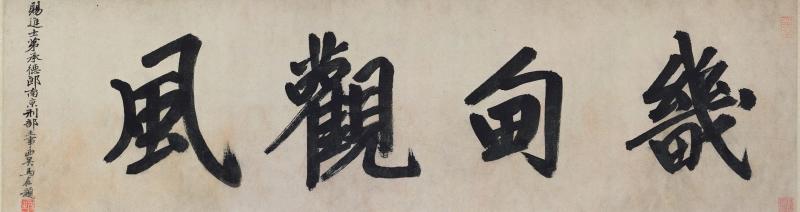 畿甸觀風
賜進士第承德郎南京刑部主事西吳馬在題